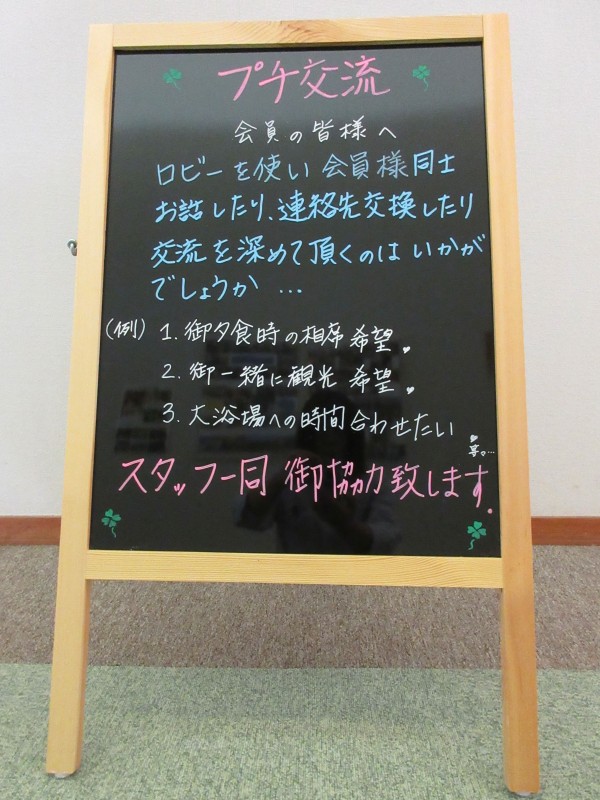 プチ交流
会員の皆様へ
ロビーを使い会員様同士
お話したり、連絡先交換したり
交流を深めて頂くのはいかが
でしょうか…
(例) 1. 御夕食時の相席希望。
2. 御一緒に観光 希望。
3. 大浴場への時間合わせたい
等。…
スタッフ一同 御協力致します。